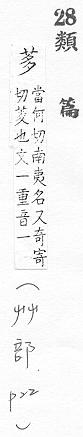 28類
篇
茤
當何切南夷名又奇寄
切芰也文一重音一
(艸部.
p22)